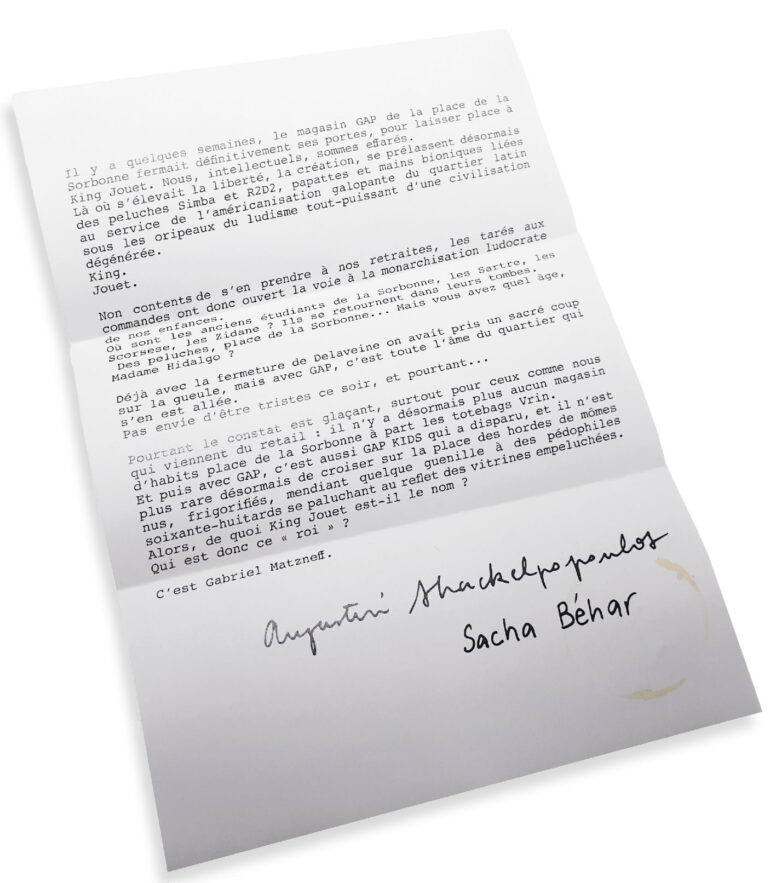 Il y a quelques semaines, le magasin GAP de la place de la
Sorbonne fermait définitivement ses portes, pour laisser place à
King Jouet. Nous, intellectuels, sommes effarés.
Là où s'élevait la liberté, la création, se prélassent désormais
des peluches Simba et R2D2, papattes et mains bioniques liées
au service de l'américanisation galopante du quartier latin
sous les oripeaux du ludisme tout-puissant d'une civilisation
dégénérée.
King.
Jouet.
Non contents de s'en prendre à nos retraites, les tarés aux
commandes ont donc ouvert la voie à la monarchisation ludocrate
de nos enfances.
Où sont les anciens étudiants de la Sorbonne, les Sartre, les
Scorsese, les Zidane ? Ils se retournent dans leurs tombes.
Des peluches, place de la Sorbonne... Mais vous avez quel âge,
Madame Hidalgo ?
Déjà avec la fermeture de Delaveine on avait pris un sacré coup
sur la gueule, mais avec GAP, c'est toute l'âme du quartier qui
s'en est allée.
Pas envie d'être tristes ce soir, et pourtant...
Pourtant le constat est glaçant, surtout pour ceux comme nous
qui viennent du retail : il n'y a désormais plus aucun magasin
d'habits place de la Sorbonne à part les totebags Vrin.
Et puis avec GAP, c'est aussi GAP KIDS qui a disparu, et il n'est
plus rare désormais de croiser sur la place des hordes de mômes
nus, frigorifiés, mendiant quelque guenille à des pédophiles
soixante-huitards se paluchant au reflet des vitrines empeluchées.
Alors, de quoi King Jouet est-il le nom ?
Qui est donc ce « roi » ?
C'est Gabriel Matzneff.
Augustin Shackelpopoulos
Sacha Béhar